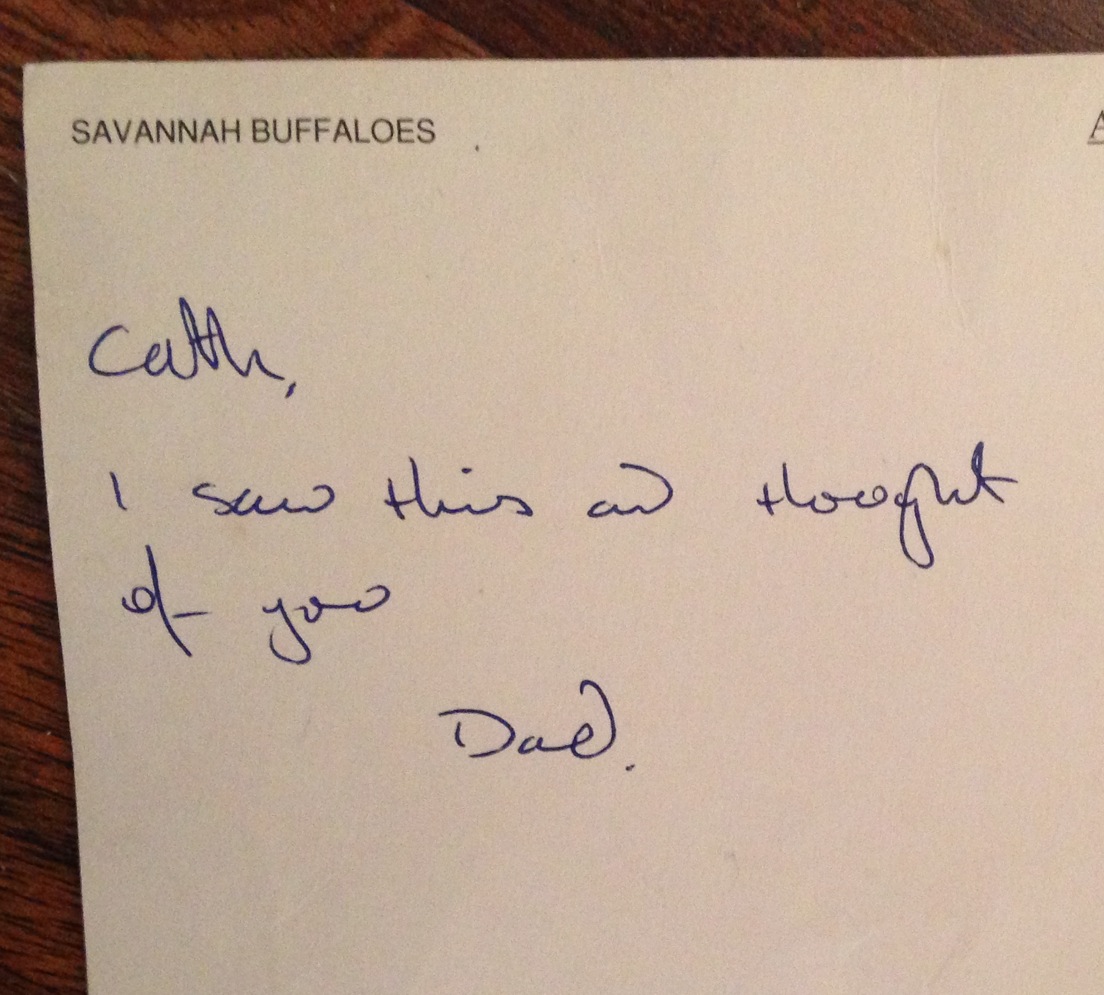 SAVANNAH BUFFALOES
A
Cath,
I saw this and thought
of you
Dad.